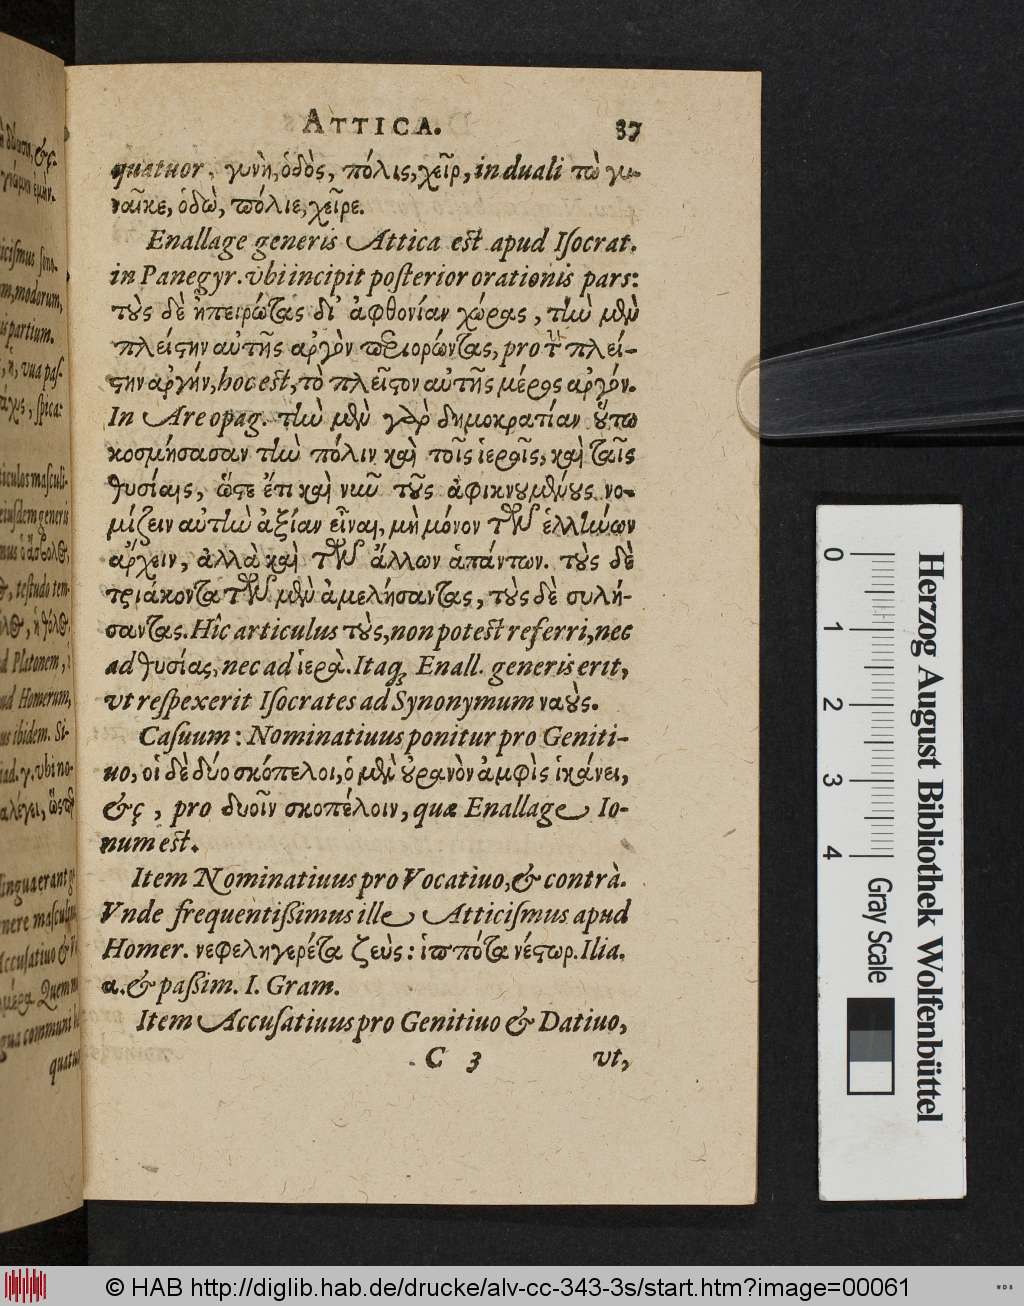 ATTICA. 37
quatuor, γυνὴ, ὁδὸς, πόλις, χεῖρ, in duali τὼ γυ-
ναῖκε, ὁδὼ, πόλιε, χεῖρε.
Enallage generis Attica est apud Isocrat.
in Panegyr. vbi incipit posterior orationis pars:
τοὺς δὲ ἠπειρώτας δι' ἀφθονίαν χώρας, τὴν μὲν
πλείστην αὐτῆς ἀργὸν περιορῶντας, pro τ πλεί-
στην ἀργήν, hoc est, τὸ πλεῖστον αὐτῆς μέρος ἀργόν.
In Areopag. τὴν μὲν γὰρ δημοκρατίαν οὕτω
κοσμήσασαν τὴν πόλιν καὶ τοῖς ἱεροῖς, καὶ ταῖς
θυσίαις, ὥστε ἔτι καὶ νῦν τοὺς ἀφικνουμένους νο-
μίζειν αὐτὴν ἀξίαν εἶναι, μὴ μόνον τῶν ἑλλήνων
ἄρχειν, ἀλλὰ καὶ τῶν ἄλλων ἁπάντων. τοὺς δὲ
τριάκοντα τῶν μὲν ἀμελήσαντας, τοὺς δὲ συλή-
σαντας. Hîc articulus τοὺς, non potest referri, nec
ad θυσίας, nec ad ἱερὰ. Itaq; Enall. generis erit,
vt respexerit Isocrates ad Synonymum ναούς.
Casuum: Nominatiuus ponitur pro Geniti-
uo, οἱ δὲ δύο σκόπελοι, ὁ μὲν οὐρανὸν ἀμφὶς ἱκάνει,
&ς, pro δυοῖν σκοπέλοιν, quæ Enallage Io-
num est.
Item Nominatiuus pro Vocatiuo, & contrà.
Vnde frequentissimus ille Atticismus apud
Homer. νεφεληγερέτα ζεὺς: ἱππότα νέστωρ. Ilia.
α. & passim. I. Gram.
Item Accusatiuus pro Genitiuo & Datiuo,
C 3 vt,
0 1 2 3 4
Gray Scale
Herzog August Bibliothek Wolfenbüttel
© HAB http://diglib.hab.de/drucke/alv-cc-343-3s/start.htm?image=00061